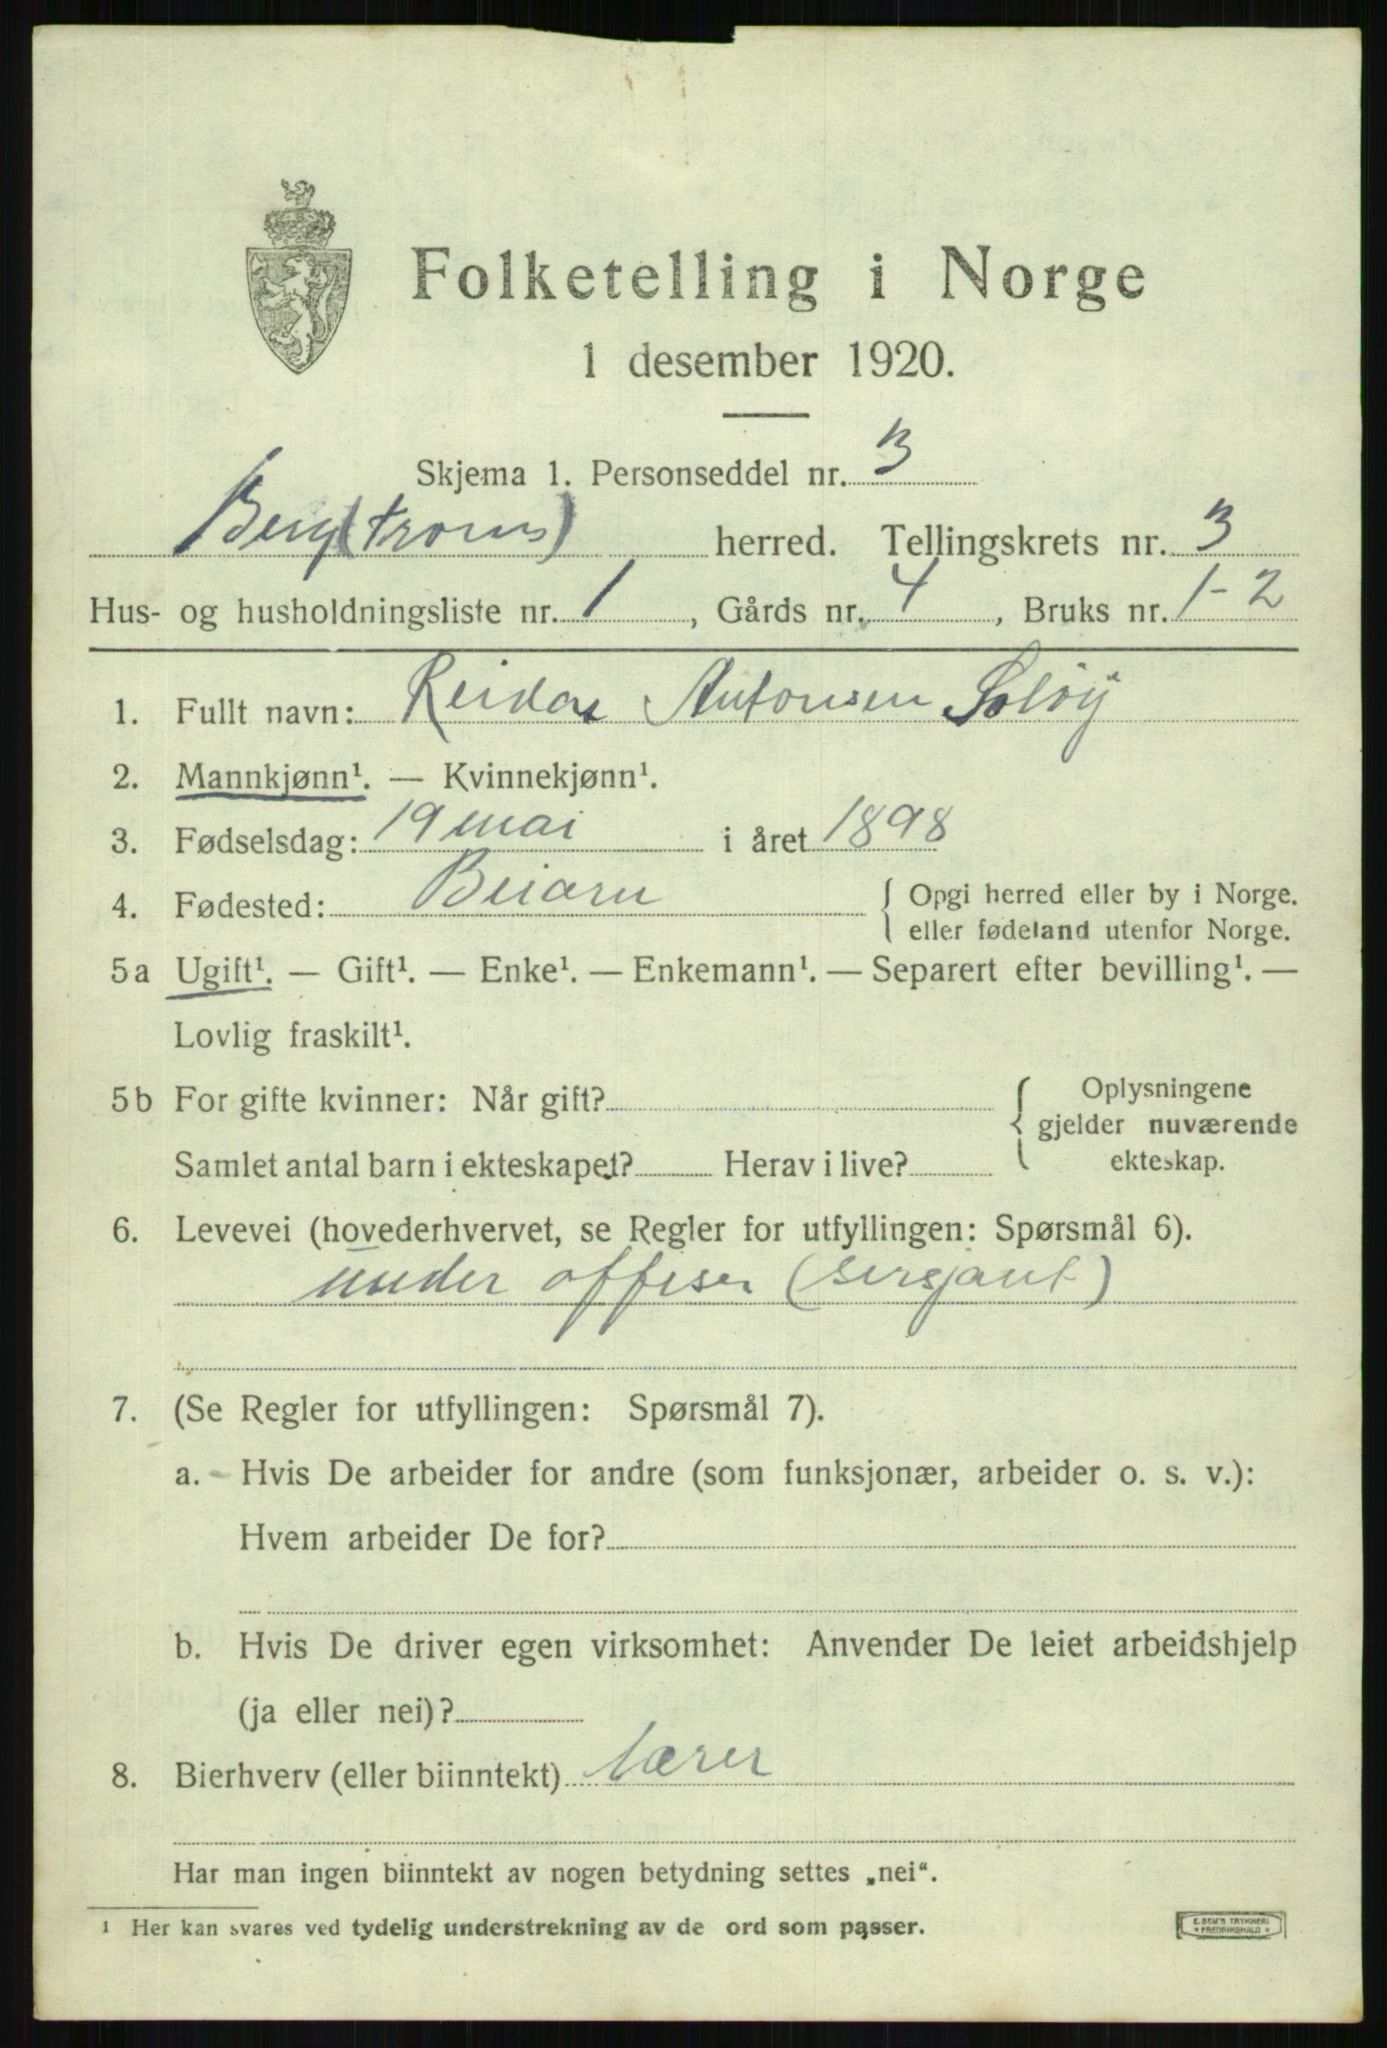 Folketelling i Norge
1 desember 1920.
Skjema 1. Personseddel nr. 3
Berg (Troms) herred. Tellingskrets nr. 3
Hus- og husholdningsliste nr. 1, Gårds nr. 4, Bruks nr. 1-2
1. Fullt navn: Reidar Antonsen Soløy
2. Mannkjønn¹. — Kvinnekjønn¹.
3. Fødselsdag: 19 mai i året 1898
4. Fødested: Beiarn { Opgi herred eller by i Norge.
eller fødeland utenfor Norge.
5a Ugift¹. — Gift¹. — Enke¹. — Enkemann¹. — Separert efter bevilling¹. —
Lovlig fraskilt¹.
5b For gifte kvinner: Når gift? { Oplysningene
gjelder nuværende
Samlet antal barn i ekteskapet? Herav i live? ekteskap.
6. Levevei (hovederhvervet, se Regler for utfyllingen: Spørsmål 6).
under offiser (sersjant)
7. (Se Regler for utfyllingen: Spørsmål 7).
a. Hvis De arbeider for andre (som funksjonær, arbeider o. s. v.):
Hvem arbeider De for?
b. Hvis De driver egen virksomhet: Anvender De leiet arbeidshjelp
(ja eller nei)?
8. Bierhverv (eller biinntekt) lærer
Har man ingen biinntekt av nogen betydning settes „nei“.
¹ Her kan svares ved tydelig understrekning av de ord som passer.
E. SEM'S TRYKKERI
* FREDRIKSHALD *